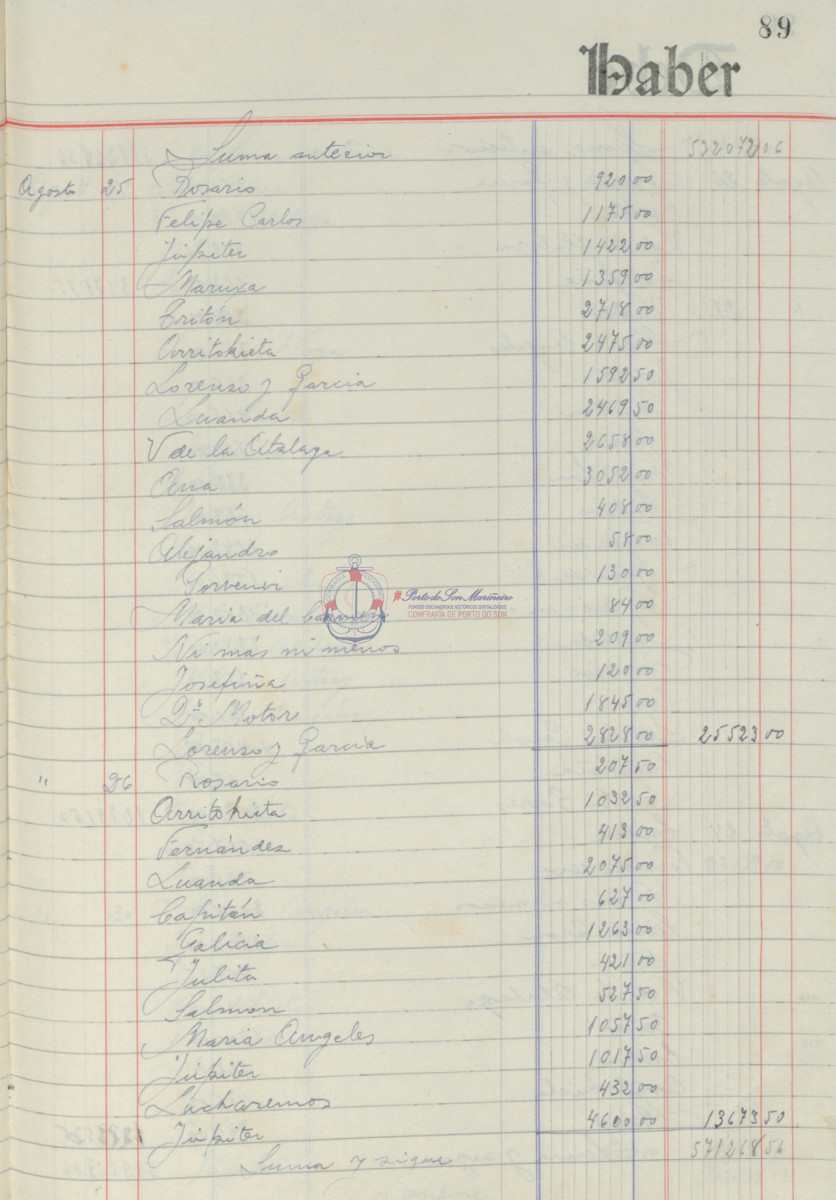 89
Haber
Suma anterior 532072 06
Agosto 25 Rosario 920 00
Felipe Carlos 1175 00
Júpiter 1422 00
Maruxa 1359 00
Tritón 2718 00
Arritokieta 2475 00
Lorenzo y Garcia 1592 50
Luanda 2469 50
V de la Atalaya 2658 00
3052 00
Salmón 408 00
Alejandro 58 00
Porvenir 130 00
Maria del Carmen 84 00
Ni más ni menos 209 00
Josefiña 120 00
Motor 1845 00
Lorenzo y Garcia 2828 00 25523 00
" 26 Rosario 207 50
Arritokieta 1032 50
Fernández 413 00
Luanda 2075 00
Capitán 627 00
Galicia 1263 00
Julita 421 00
Salmon 527 50
Maria Angeles 1057 50
Júpiter 1017 50
Lucharemos 432 00
Júpiter 4600 00 13673 50
Suma y sigue 571268 56
#Porto do Son Mariñeiro
FONDOS DOCUMENTAIS HISTÓRICOS DIXITALIZADOS
CONFRARÍA DE PORTO DO SON